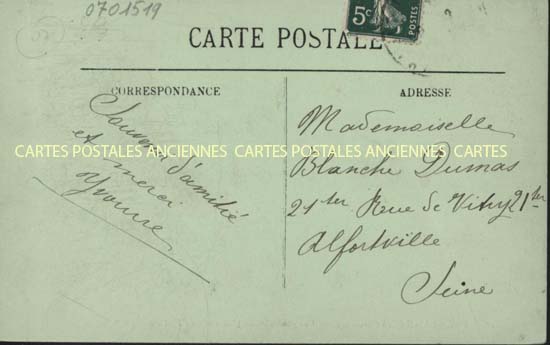 0701519
5c
POSTES
CARTE POSTALE
CORRESPONDANCE
ADRESSE
Souvenir d'amitié
et merci
Yvonne
Mademoiselle
Blanche Dumas
21 ter Rue de Vitry 21 ter
Alfortville
Seine
CARTES POSTALES ANCIENNES CARTES POSTALES ANCIENNES CARTES